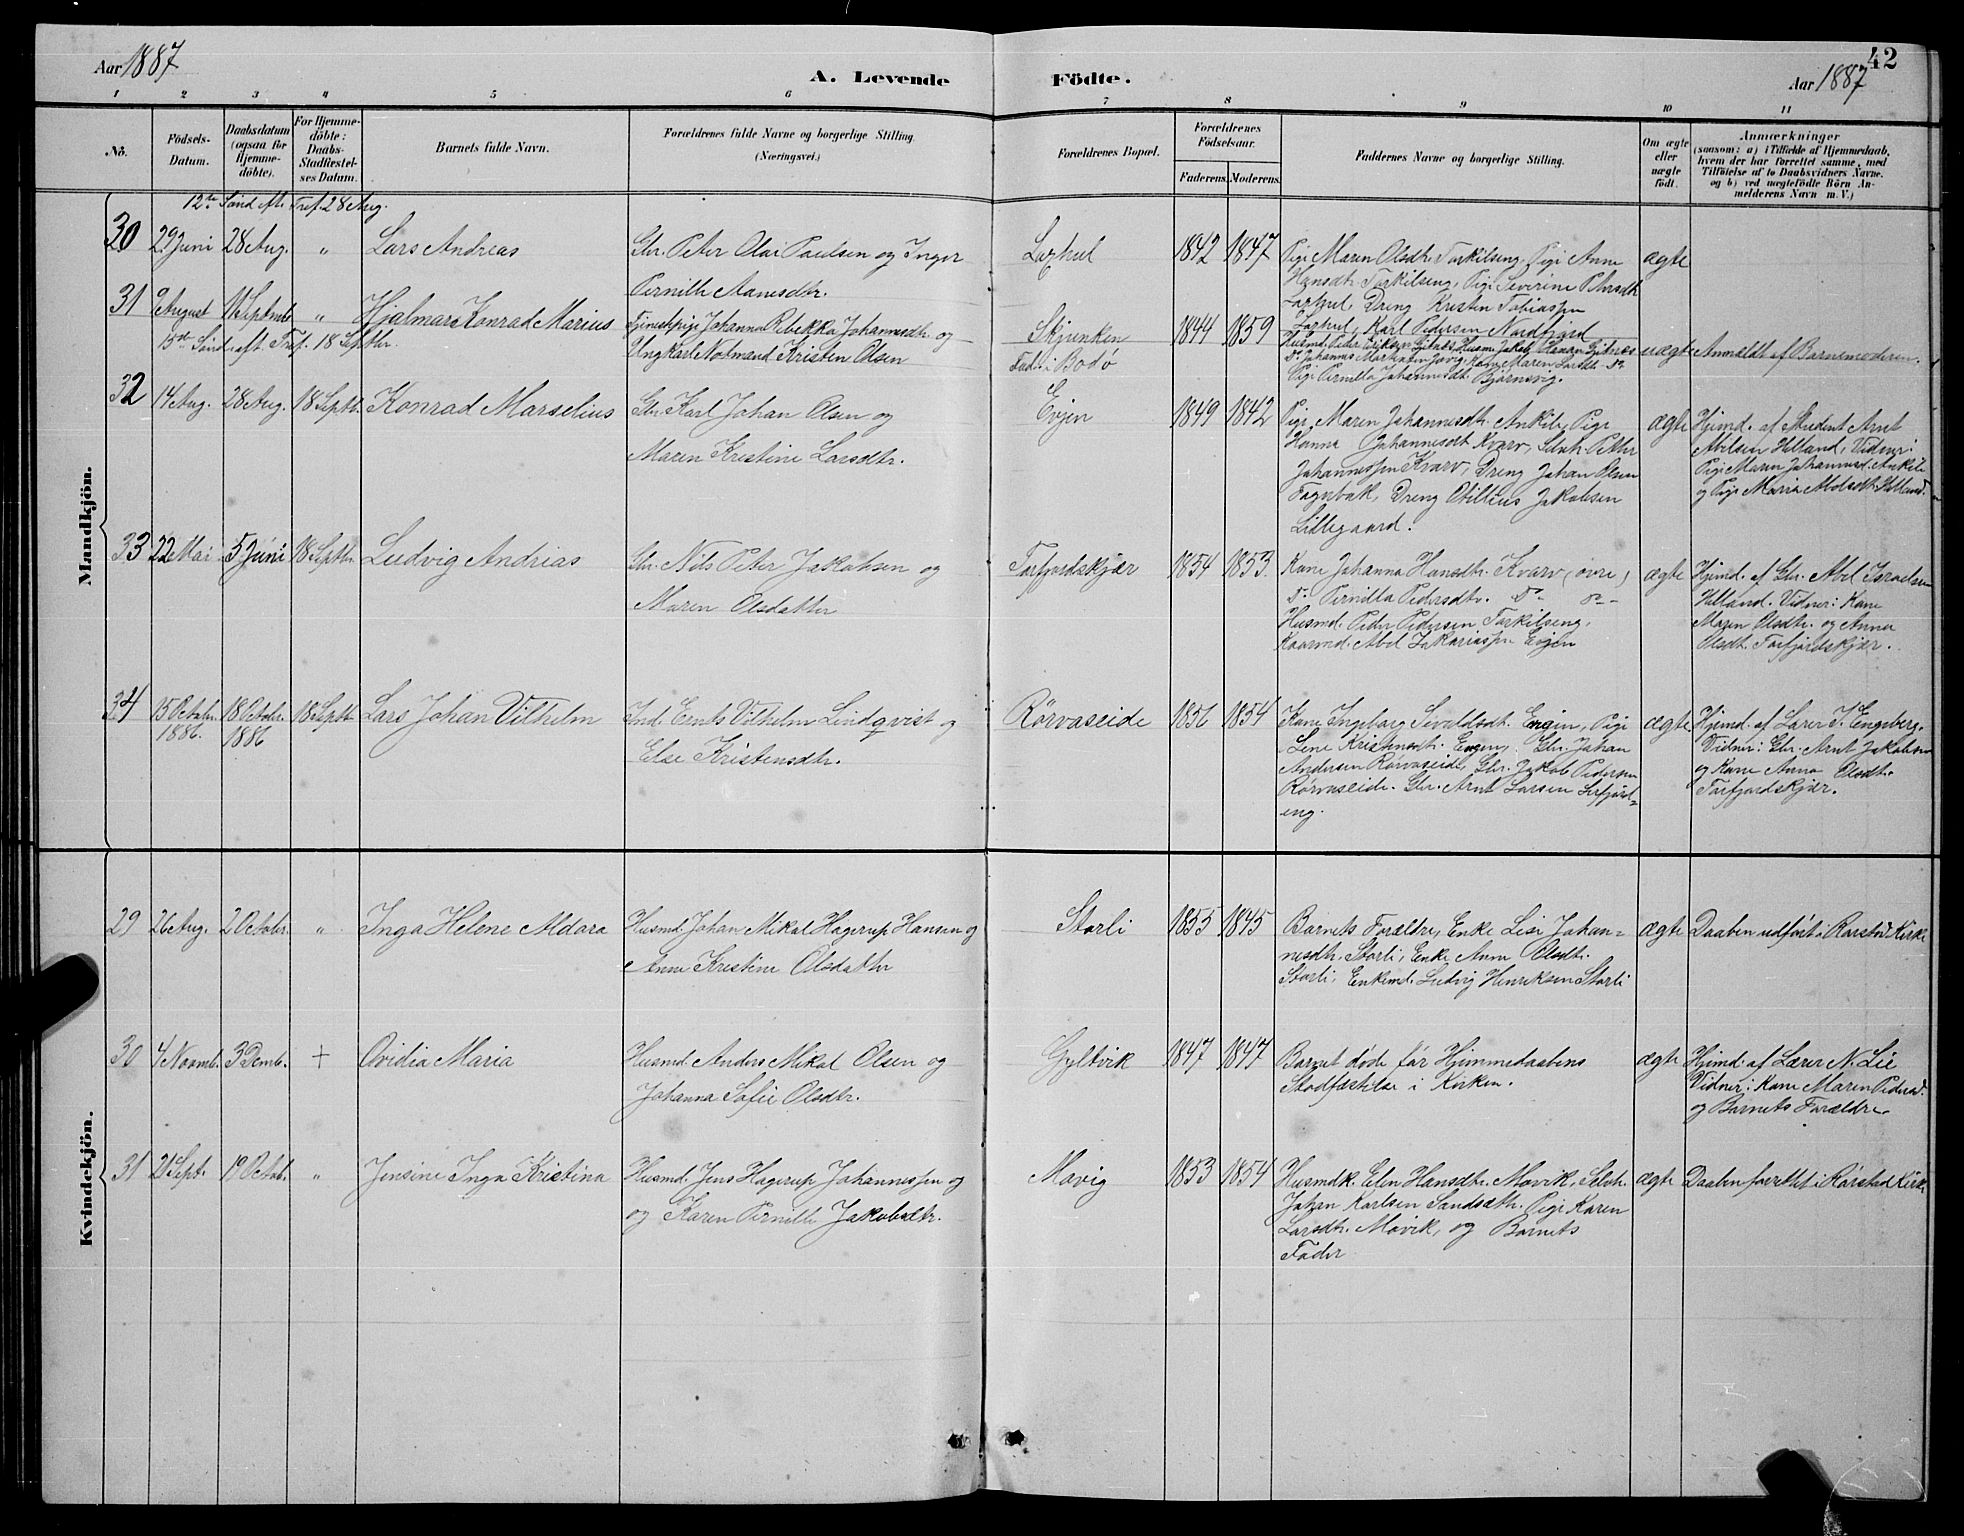 Aar 1887
A. Levende Födte.
42
Aar 1887
1 2 3 4 5 6 7 8 9 10 11
No.
Födsels-Datum.
Daabsdatum (ogsaa for Hjemme-döbte).
For Hjemme-döbte: Daabs-Stadfæstel-ses Datum.
Barnets fulde Navn.
Forældrenes fulde Navne og borgerlige Stilling.
(Næringsvei.)
Forældrenes Bopæl.
Forældrenes Födselsaar.
Faderens. Moderens.
Faddernes Navne og borgerlige Stilling.
Om ægte eller uægte födt.
Anmærkninger
(saasom: a) i Tilfælde af Hjemmedaab,
hvem der har forrettet samme, med
Tilföielse af to Daabsvidners Navne.
og b) ved uægtefödte Börn An-
melderens Navn m. V.)
Mandkjön.
12te Sönd. eft. Tref. 28 Aug.
30 29 Juni 28 Aug. " Lars Andreas
Gbr. Peter Olai Paulsen og Inger
Pernille Aanesdtr.
1842 1847
Pige Maren Olsdtr. Torkilseng, Pige Anne
Hansdtr. Torkilseng, Pige Severine Petersdtr.
Dreng Kristen Tobiassen
Karl Pedersen Nordfjord
ægte
31 9 August 11 Septmb. " Hjalmar Konrad Marius
Tjenestepige Johanna Rebekka Johannesdtr. og
Ungkarl Notmand Kristen Olsen
Skjenken
Fad. i Bodö
1844 1859
Husmd. Peder Eriksen Gjitnes, Husm. Jakob Hansen Gjitnes
Do Johannes Martinsen Kone Maren Larsdtr. Do
Pige Pernilla Johannesdtr. Bjørnsvig.
uægte Anmeldt af Barnemoderen.
15de Sönd. eft. Tref. 18 Septbr.
32 14 Aug. 28 Aug. 18 Septb. Konrad Marselius
Gbr. Karl Johan Olsen og
Maren Kristine Larsdtr.
Evjen 1849 1842
Pige Maren Johannesdtr. Ankile, Pige
Hanna Johannesdt. Kvarv, Selvh. Petter
Johannessen Kvarv, Dreng Johan Olsen
Fagerbak, Dreng Otillius Jakobsen
Lillegaard.
ægte
Hjemd. af Student Arnt
Abelsen Helland, Vidner:
Pige Maren Johannesd. Ankile
og Pige Maria Abelsdt. Helland.
33 22 Mai 5 Juni 18 Septbr. Ludvig Andreas
Gbr. Nils Peter Jakobsen og
Maren Olsdatter
Torfjordskjær 1854 1853.
Kone Johanna Hansdtr. Kvarv (övre)
Do Pernilla Pedersdtr. Do Do
Husmd. Peder Pedersen Torkilseng,
Kaarmd. Abel Zakariassen Evjen
ægte
Hjemd. af Gbr. Abel Israelsen
Helland. Vidner: Kone
Maren Olsdtr. og Anna
Olsdt. Torfjordskjær.
34 15 Octobr. 1886. 18 Octobr. 1886 18 Septb. Lars Johan Vilhelm
Ind. Ernts Vilhelm Lindqvist og
Else Kristensdtr.
Rörvaseide 1856 1854
Kone Ingeborg Sevaldsdt. Engan, Pige
Lene Kristensdtr. Engan, Gbr. Johan
Andersen Rørvaseide, Gbr. Jakob Pedersen
Rørvaseide. Gbr. Arnt Larsen Lerfjord=
eng.
ægte
Hjemd. af Lærer J. Engeberg.
Vidner: Gbr. Arnt Jakobsen
og Kone Anna Olsdt.
Torfjordskjær.
Kvindekjön.
29 26 Aug. 2 Octobr. " Inga Helene Aldora
Husmd. Johan Mikal Hagerup Hansen og
Anne Kristine Olsdatter
Storli 1855 1845
Barnets Forældre, Enke Lisi Johan=
nesdtr. Storli, Enke Anne Olsdtr.
Storli, Enkemd. Ludvig Henriksen Storli
ægte Daaben udført i Rørstad Kirke
30 4 Novmb. 3 Decmb. + Ovidia Maria
Husmd. Anders Mikal Olsen og
Johanna Sofie Olsdtr.
Gyltvik 1847 1847
Barnet døde før Hjemmedaabens
Stadfæstelse i Kirken.
ægte
Hjemd. af Lærer N. Lie
Vidner: Kone Maren Pedersd.
og Barnets Forældre
31 21 Sept. 19 Octob. " Jensine Inga Kristina
Husmd. Jens Hagerup Johannessen og
og Karen Pernille Jakobsdtr.
Movig 1853 1854
Husmdk. Elen Hansdtr. Movik, Selvh.
Johan Karlsen Sandsæth. Pige Karen
Larsdtr. Movik, og Barnets
Fader
ægte Daaben forettet i Rørstad Kirke